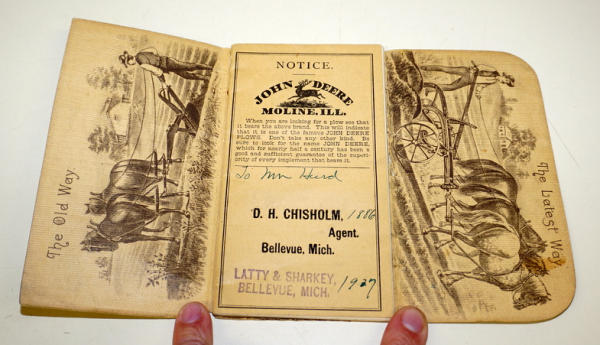 The Old Way
NOTICE.
JOHN DEERE
MOLINE, ILL.
When you are looking for a plow see that
it bears the above brand. This will indicate
that it is one of the famous JOHN DEERE
PLOWS. Don't take any other kind. Be
sure to look for the name JOHN DEERE,
which for nearly half a century has been a
good and sufficient guarantee of the superi-
ority of every implement that bears it.
To Mrs Hurd
D. H. CHISHOLM, 1886
Agent.
Bellevue, Mich.
LATTY & SHARKEY, 1937
BELLEVUE, MICH.
The Latest Way